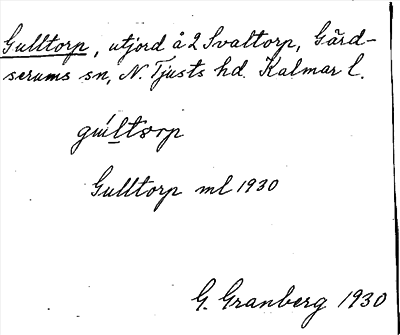 Gulltorp, utjord å 2 Svaltorp, Gärd-
serums sn, N. Tjusts hd. Kalmar l.
gúlltorp
Gulltorp ml 1930
G. Granberg 1930